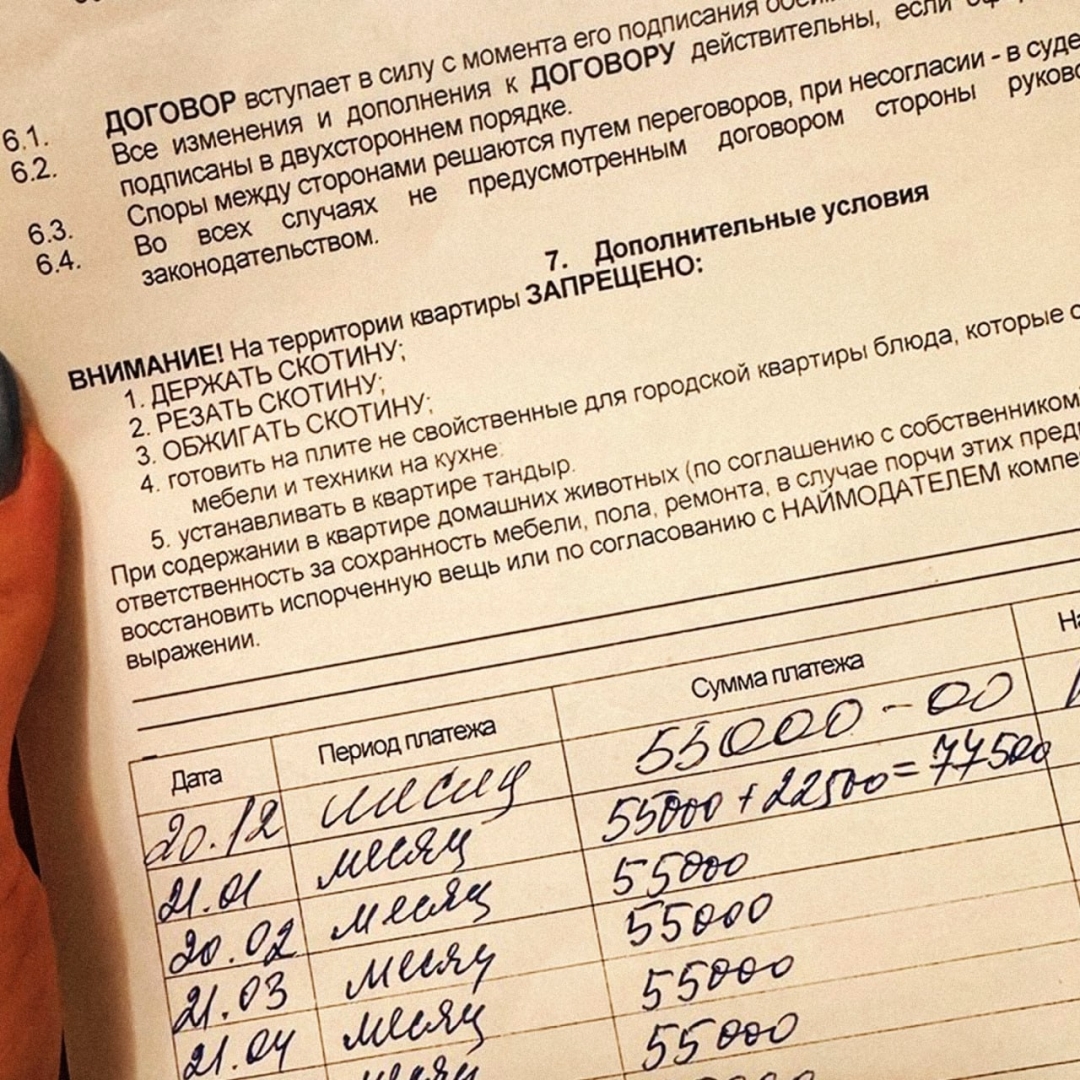 6.1. ДОГОВОР вступает в силу с момента его подписания
6.2. Все изменения и дополнения к ДОГОВОРУ действительны, если
подписаны в двухстороннем порядке.
6.3. Споры между сторонами решаются путем переговоров, при несогласии - в суде
6.4. Во всех случаях не предусмотренным договором стороны руково
законодательством.
7. Дополнительные условия
ВНИМАНИЕ! На территории квартиры ЗАПРЕЩЕНО:
1. ДЕРЖАТЬ СКОТИНУ;
2. РЕЗАТЬ СКОТИНУ;
3. ОБЖИГАТЬ СКОТИНУ;
4. готовить на плите не свойственные для городской квартиры блюда, которые с
мебели и техники на кухне.
5. устанавливать в квартире тандыр.
При содержании в квартире домашних животных (по соглашению с собственником)
ответственность за сохранность мебели, пола, ремонта, в случае порчи этих пред
восстановить испорченную вещь или по согласованию с НАЙМОДАТЕЛЕМ компе
выражении.
Дата Период платежа Сумма платежа На
20.12 месяц 55000-00
21.01 месяц 55000 + 22500 = 77500
20.02 месяц 55000
21.03 месяц 55000
21.04 месяц 55000
месяц 55000